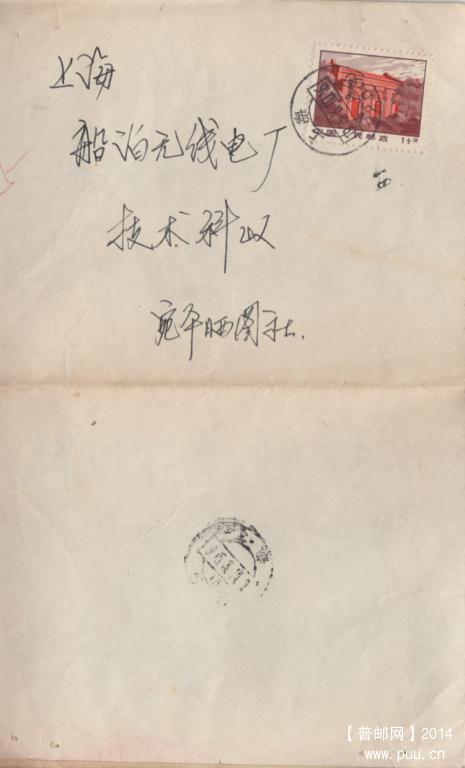 中国人民邮政 1½分
上海
船泊无线电厂
技术科收
宛平晒图社.
上海
【普邮网】2014
www.puu.cn